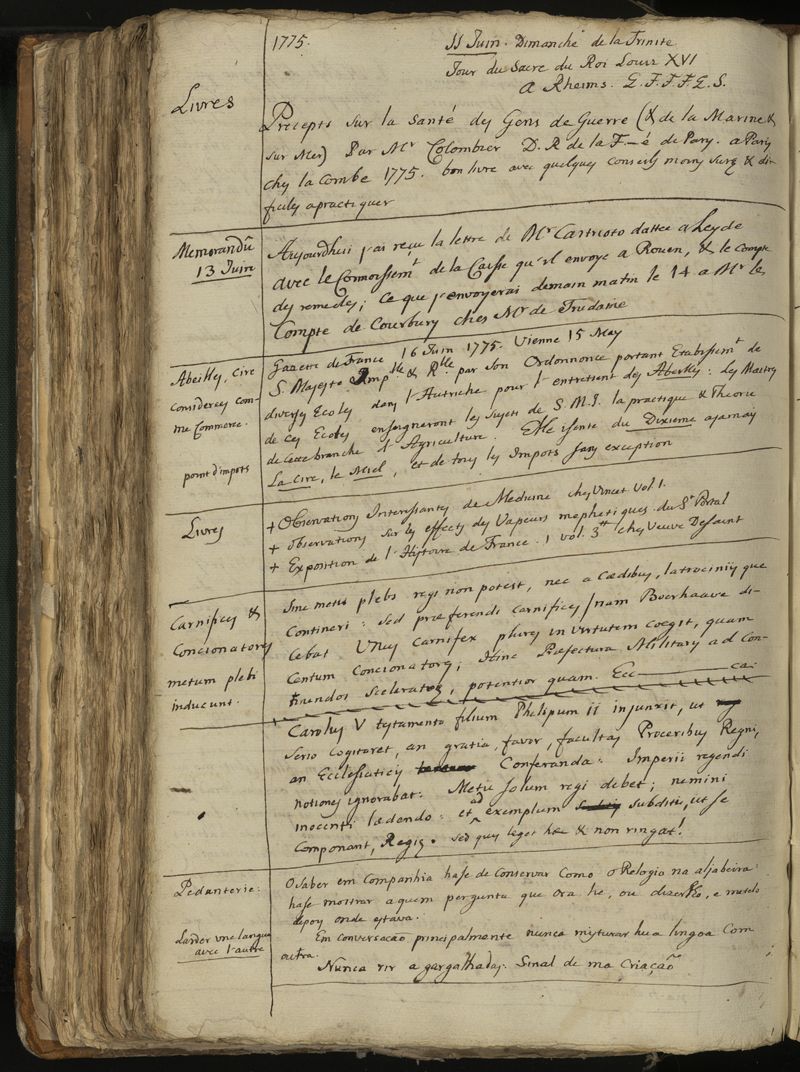 1775.
11 Juin. Dimanche de la Trinite
Jour du Sacre du Roi Louis XVI
a Rheims. E.F.F.F.E.S.
Livres
Precepts sur la Santé des Gens de Guerre (& de la Marine &
sur Mer) Par Mr Colombier D. R de la F—é de Pary. a Paris
ches la Combe 1775. bon livre avec quelques conseils moins surs & di-
ficiles a practiquer
Memorandũ
13 Juin
Aujourdhui j'ai reçu la lettre de Mr Castrioto dattee a Leyde
avec le Connoissemt de la Caisse qu'il envoye a Rouen, & le Compte
des remedes; Ce que j'envoyerai demain matin le 14 a Mr le
Compte de Courbury ches Mr de Trudaine
Abeilles, cire
considerees com-
me Commerce.
point d'impots
Gazette de France 16 Juin 1775. Vienne 15 May
S. Majeste Imp.lle & R.lle par son Ordonnonce portant Etablissemt de
diverses Ecoles dans l'Autriche pour l'entretient des Abeilles: les Maitres
de ces Ecoles enseigneront les sujets de S. M. I. la practique & Theorie
de cette branche d'Agriculture. Elle isente du Dixieme ajamay
La Cire, le Miel, et de tous les Impots sans exception
Livres
+ Observations Interessantes de Medicine ches Vincet Vol 1.
+ Observations sur les effects des Vapeurs mephetiques. du Sr Portal
+ Exposition de l'Histoire de France. 1 vol. 3tt ches Veuve Desaint
Carnifices &
Concionatores
metum plebi
inducunt.
Sine metu plebs regi non potest, nec a Caedibus, latrociniis que
Contineri: sed praeferendi Carnifices, nam Boerhaave di-
cebat Unus Carnifex plures in virtutem coegit, quam
Centum Concionatores; Hinc Praefectura Militarys ad con-
tinendos Sceleratos, potentior quam. Ecc——— ca.
Carolus V testamento filium Philipum II injunxit, ut
Serio Cogitaret, an gratia, favor, facultas Proceribus Regni,
an Ecclesiaticis Conferanda: Imperii regendi
notiones ignorabat: Metu solum regi debet; nemini
inocenti laedendo: et ad exemplum subditi, ut se
Componant, Regis. sed quis leget haec & non ringat!
Pedanterie:
Larder une langue
avec l'autre
O Saber em Companhia hase de Conservar Como o Relogio na aljabeira:
hase mostrar a quem pergunta que ora he, ou dizerlho, e metelo
depois onde estava.
Em conversacaõ principalmente nunca misturar hua lingoa Com
outra.
Nunca rir a gargalhadas. Sinal de ma Criaçaõ